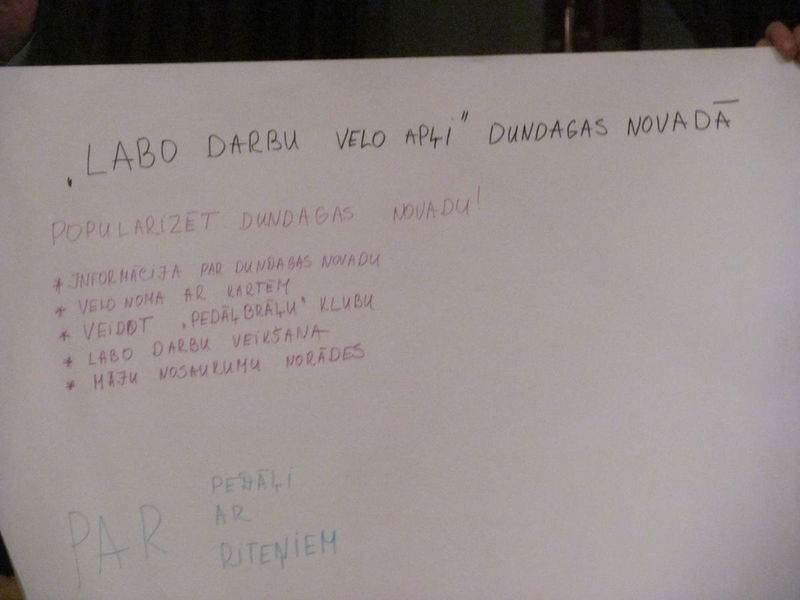 „LABO DARBU VELO APĻI" DUNDAGAS NOVADĀ
POPULARIZĒT DUNDAGAS NOVADU!
* INFORMĀCIJA PAR DUNDAGAS NOVADU
* VELO NOMA AR KARTĒM
* VEIDOT „PEDĀĻBRĀĻU" KLUBU
* LABO DARBU VEIKŠANA
* MĀJU NOSAUKUMU NORĀDES
PAR
PEDĀĻI
AR
RITEŅIEM